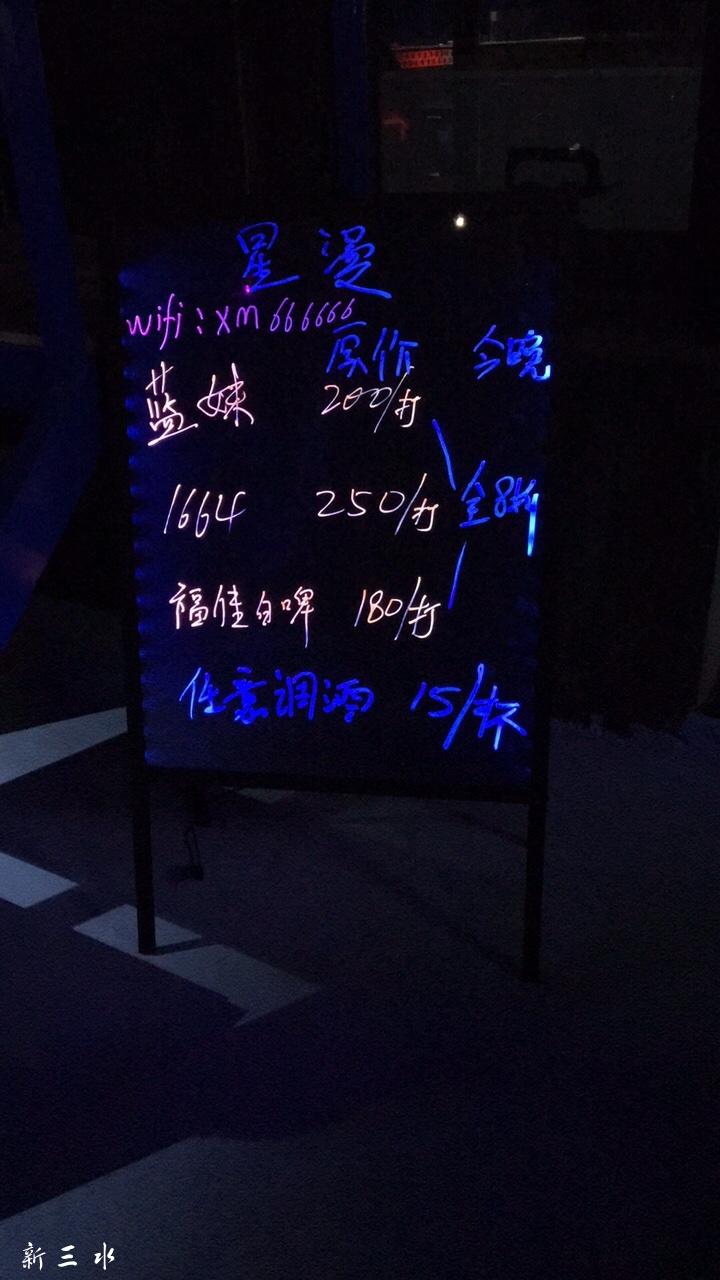 星漫
wifi:xm666666
原价 今晚
蓝妹 200/打
1664 250/打 全8折
福佳白啤 180/打
任意调酒 15/杯
新三水